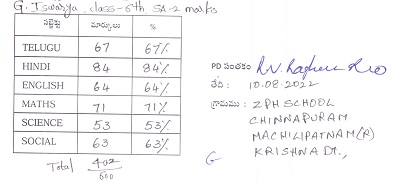 G. Iswarya, class-6th SA-2 marks
సబ్జెక్టు మార్కులు %
TELUGU 67 67%
HINDI 84 84%
ENGLISH 64 64%
MATHS 71 71%
SCIENCE 53 53%
SOCIAL 63 63%
Total 402/600
PD సంతకం
తేది : 10.08.2022
గ్రామము : ZPH SCHOOL
CHINNAPURAM
MACHILIPATNAM(R)
KRISHNA Dt.,
G